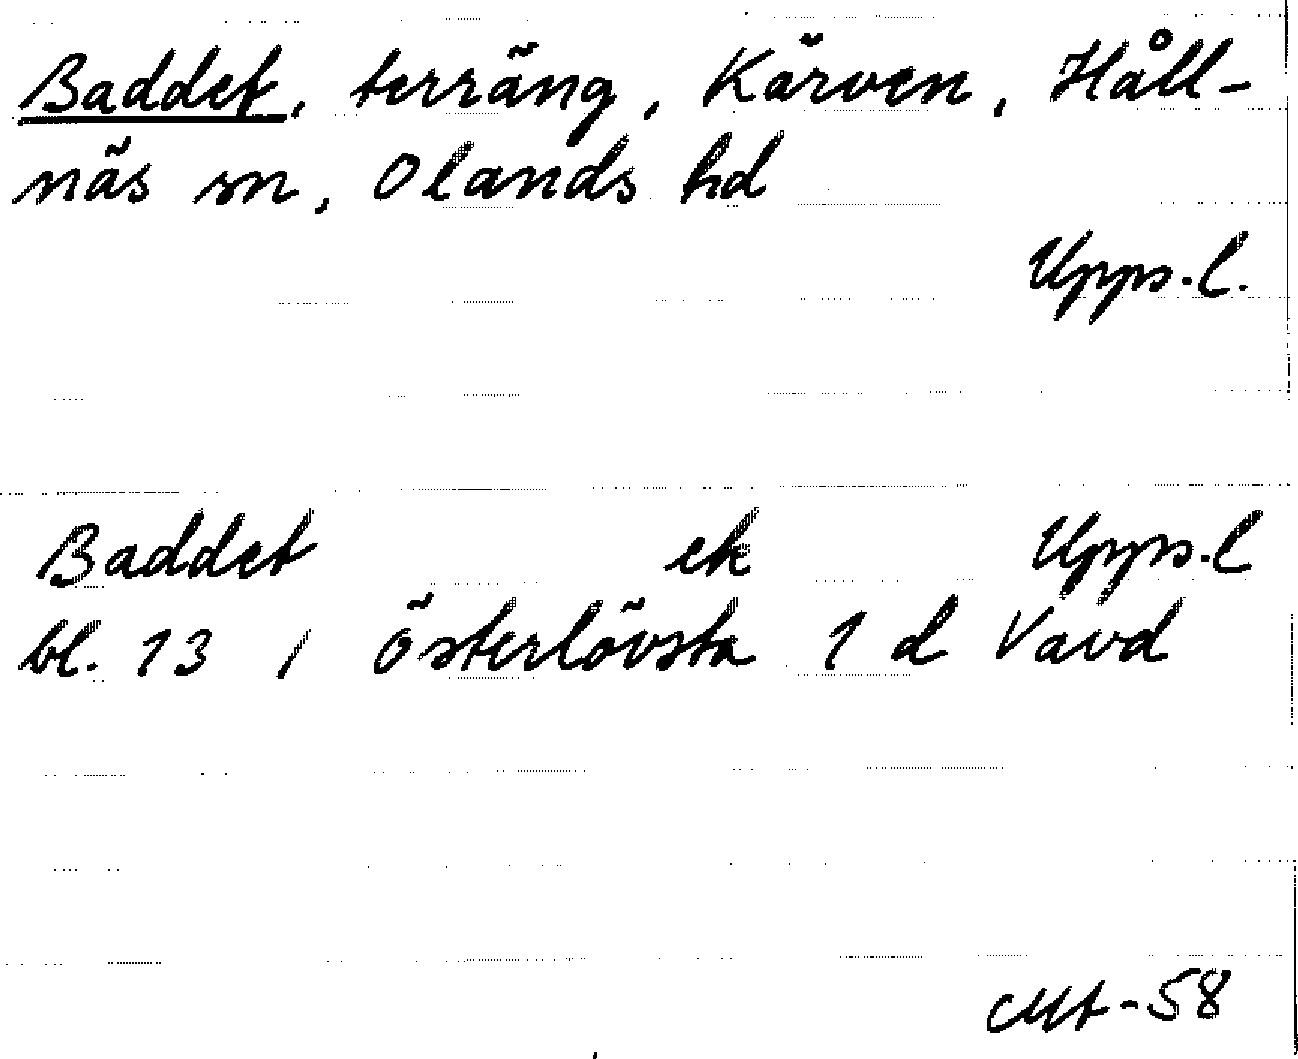 Baddet, terräng, Kärven, Håll-
näs sn, Olands hd
Upps.l.
Baddet ek Upps.l
bl. 13 i Österlövsta 1 d Vavd
-58